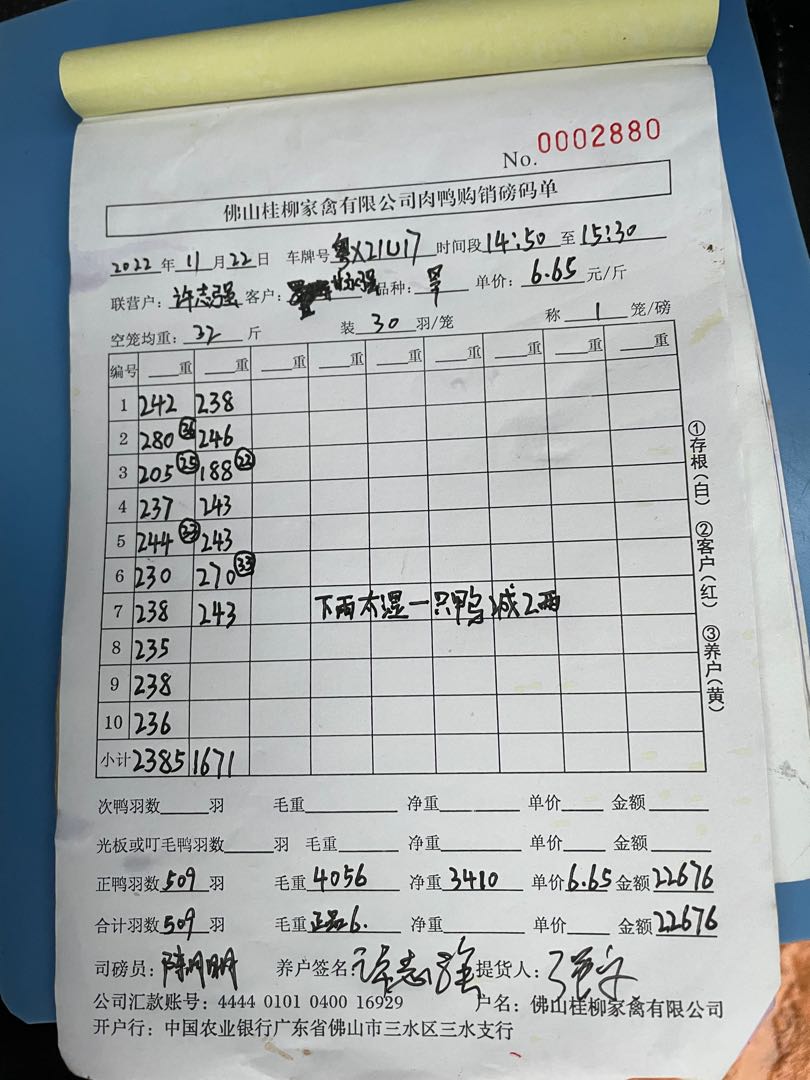 No. 0002880
佛山桂柳家禽有限公司肉鸭购销磅码单
2022年11月22日 车牌号粤X21U17时间段14:50至15:30
联营户：许志强 客户： 品种： 单价：6.65元/斤
空笼均重：32斤 装30羽/笼 称1笼/磅
编号 重 重 重 重 重 重 重 重
1 242 238
2 280㊱ 246
3 205㉕ 188㉒
4 237 243
5 244㉓ 243
6 230 270㉝
7 238 243 下雨太湿一只鸭减2两
8 235
9 238
10 236
小计 2385 1671
①存根(白) ②客户(红) ③养户(黄)
次鸭羽数 羽 毛重 净重 单价 金额
光板或叮毛鸭羽数 羽 毛重 净重 单价 金额
正鸭羽数509羽 毛重4056 净重3410 单价6.65 金额22676
合计羽数509羽 毛重 净重 单价 金额22676
司磅员：陈明明 养户签名许志强 提货人：
公司汇款账号：4444 0101 0400 16929 户名：佛山桂柳家禽有限公司
开户行：中国农业银行广东省佛山市三水区三水支行